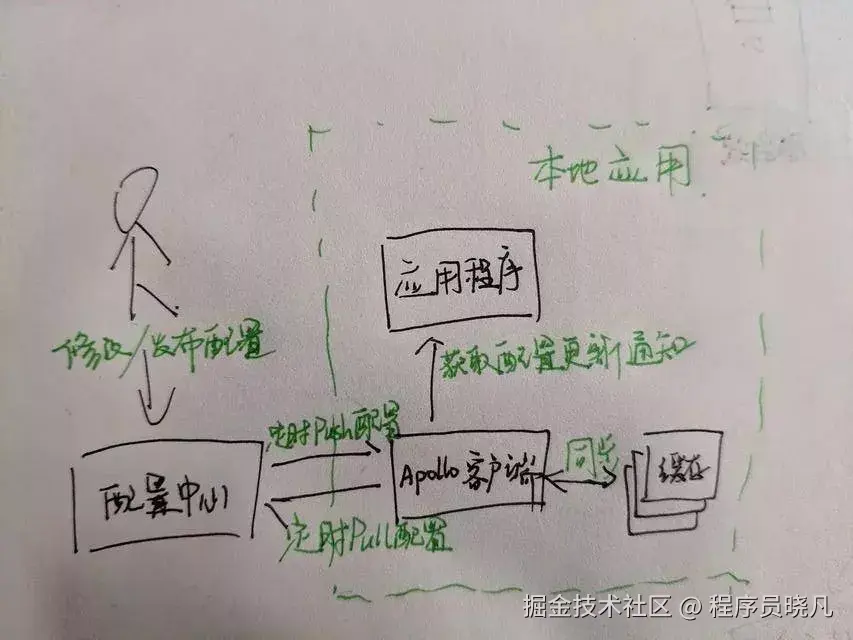 本地应用
应用程序
修改/发布配置
获取配置更新通知
定时Push配置
配置中心
Apollo客户端
同步
缓存
定时Pull配置
掘金技术社区 @ 程序员晓凡